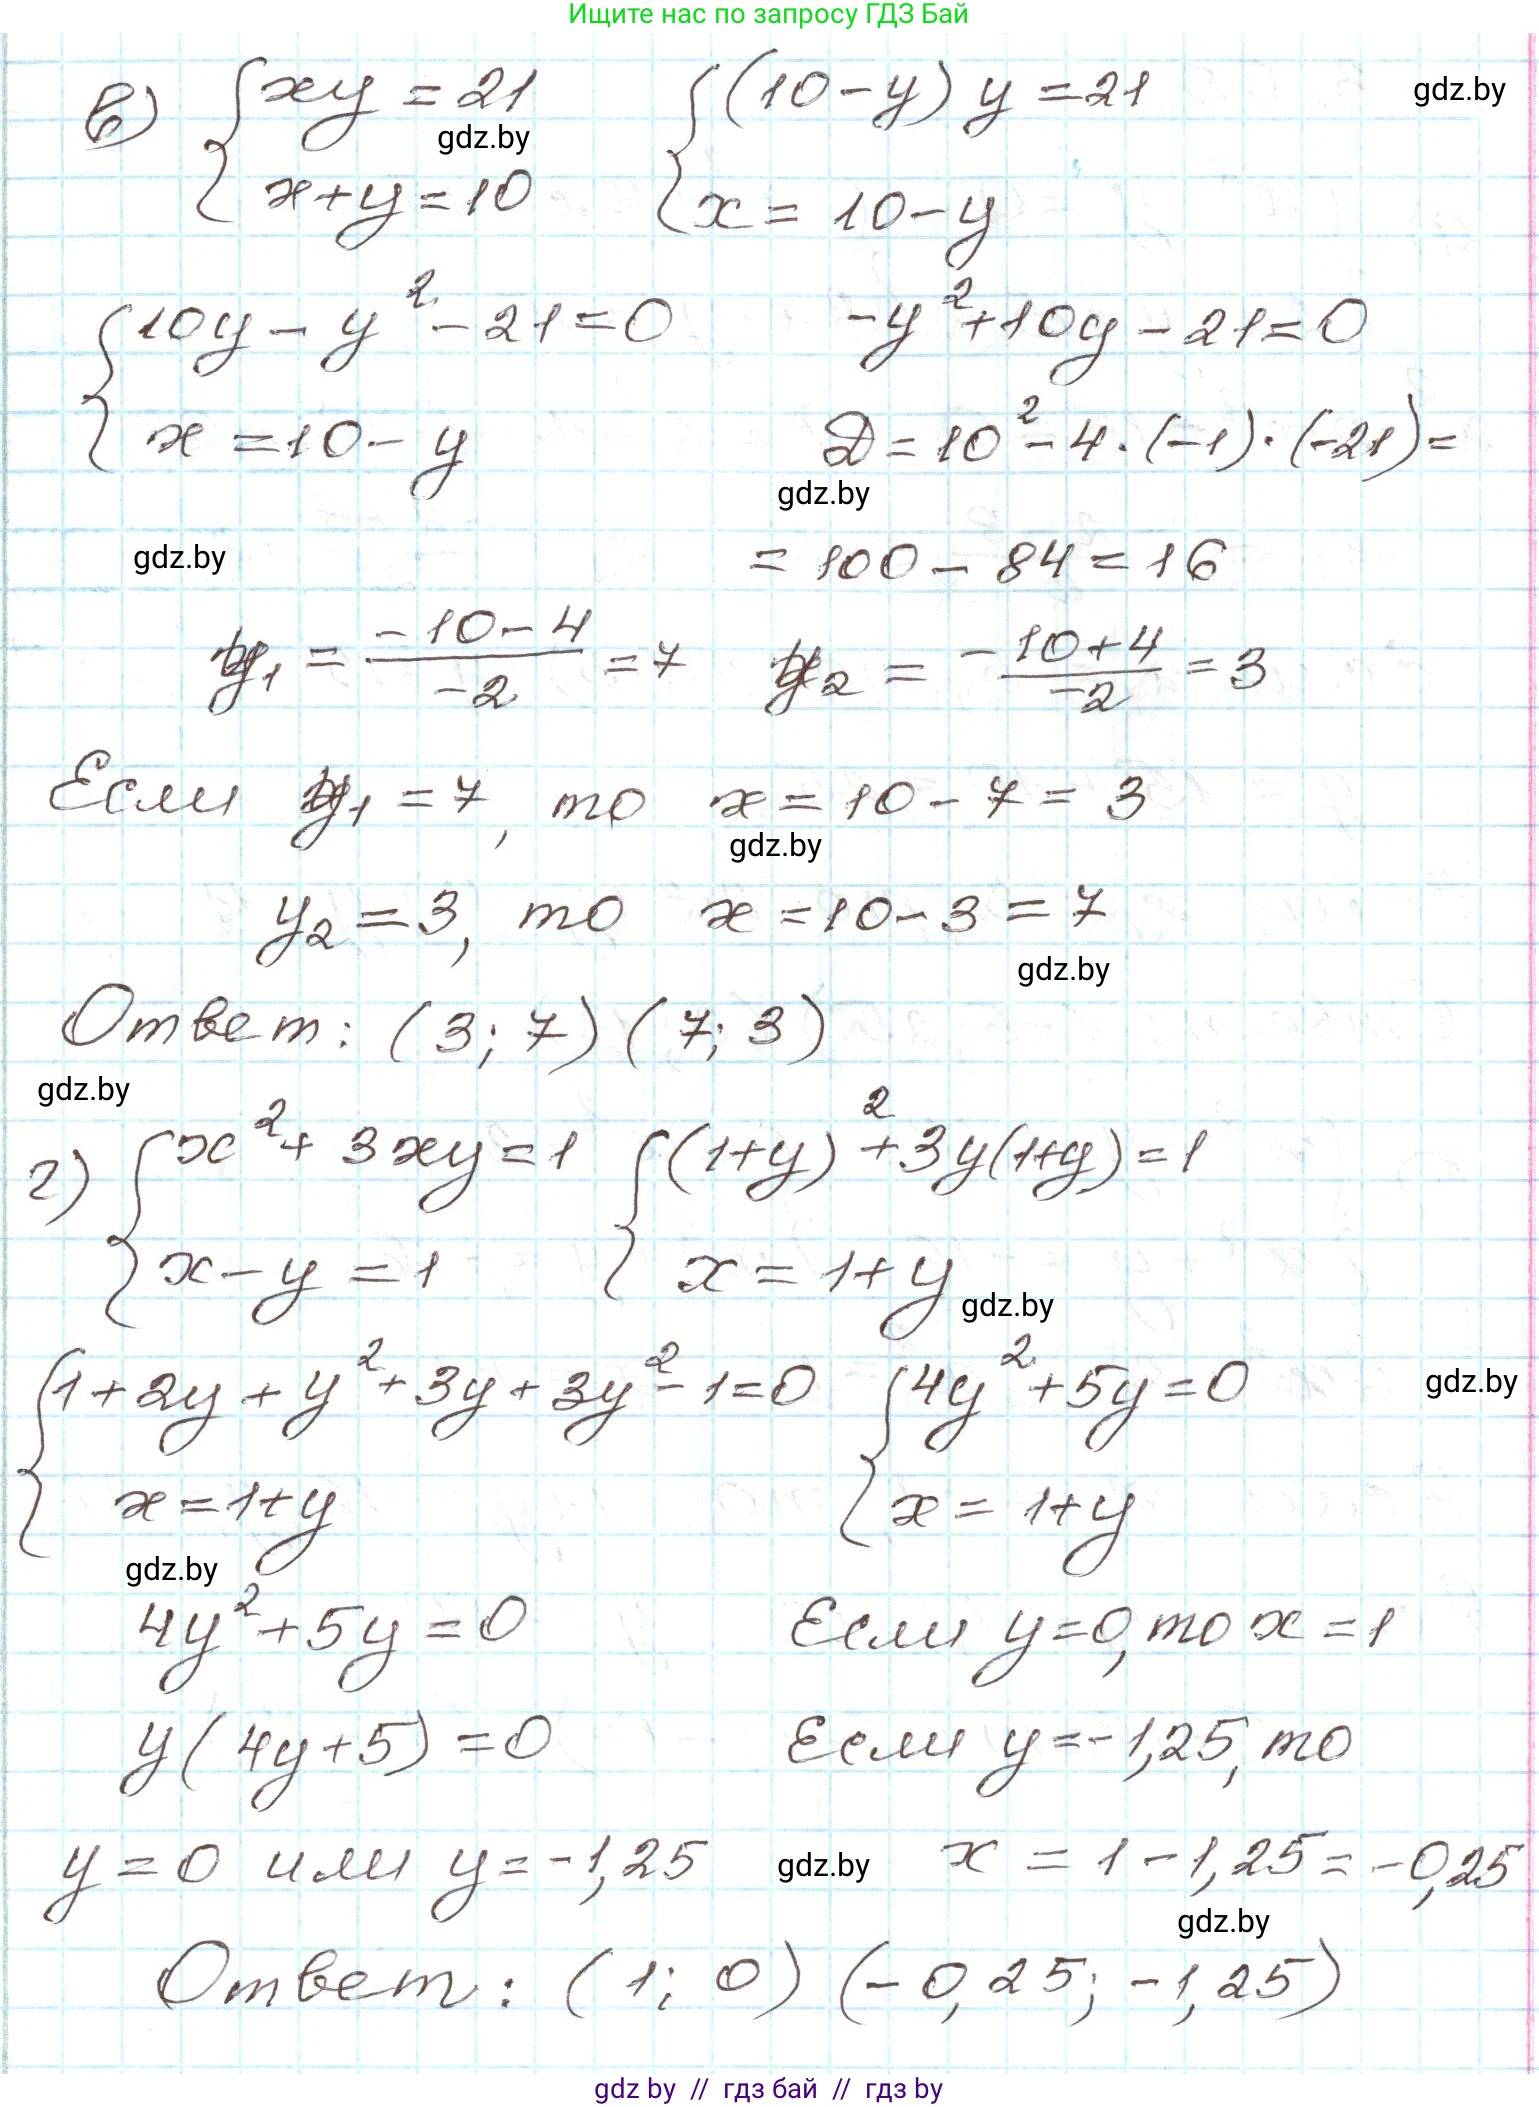 Ищите нас по запросу ГДЗ Бай
в) { xy = 21 { (10 - y) y = 21 gdz.by
gdz.by
x + y = 10 x = 10 - y
{ 10y - y² - 21 = 0 -y² + 10y - 21 = 0
x = 10 - y D = 10² - 4 · (-1) · (-21) =
gdz.by
gdz.by = 100 - 84 = 16
y₁ = (-10 - 4)/(-2) = 7 y₂ = -(10 + 4)/(-2) = 3
Если y₁ = 7, то x = 10 - 7 = 3
gdz.by
y₂ = 3, то x = 10 - 3 = 7
gdz.by
Ответ: (3; 7) (7; 3)
gdz.by
г) { x² + 3xy = 1 { (1+y)² + 3y(1+y) = 1
x - y = 1 x = 1 + y
gdz.by
{ 1 + 2y + y² + 3y + 3y² - 1 = 0 { 4y² + 5y = 0 gdz.by
x = 1 + y x = 1 + y
gdz.by
4y² + 5y = 0 Если y = 0, то x = 1
y(4y + 5) = 0 Если y = -1,25, то
y = 0 или y = -1,25 gdz.by x = 1 - 1,25 = -0,25
gdz.by
Ответ: (1; 0) (-0,25; -1,25)
gdz by // гдз бай // гдз by